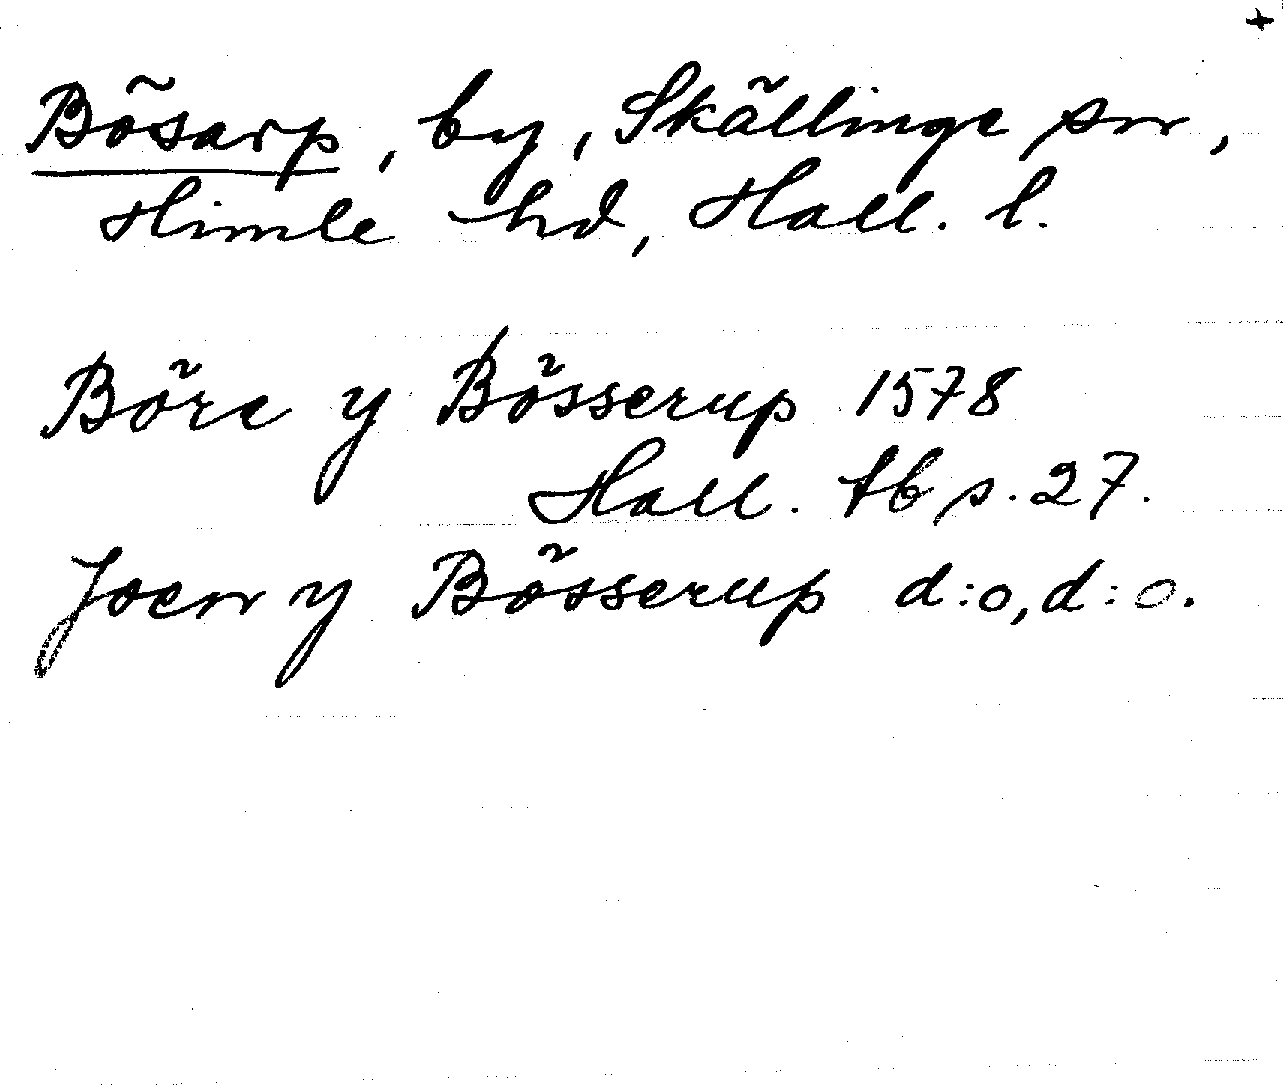 +
Bösarp, by, Skällinge sn,
Himle hd, Hall. l.
Böre y Bösserup 1578
Hall. tb s. 27.
Joen y Bösserup d:o, d:o.